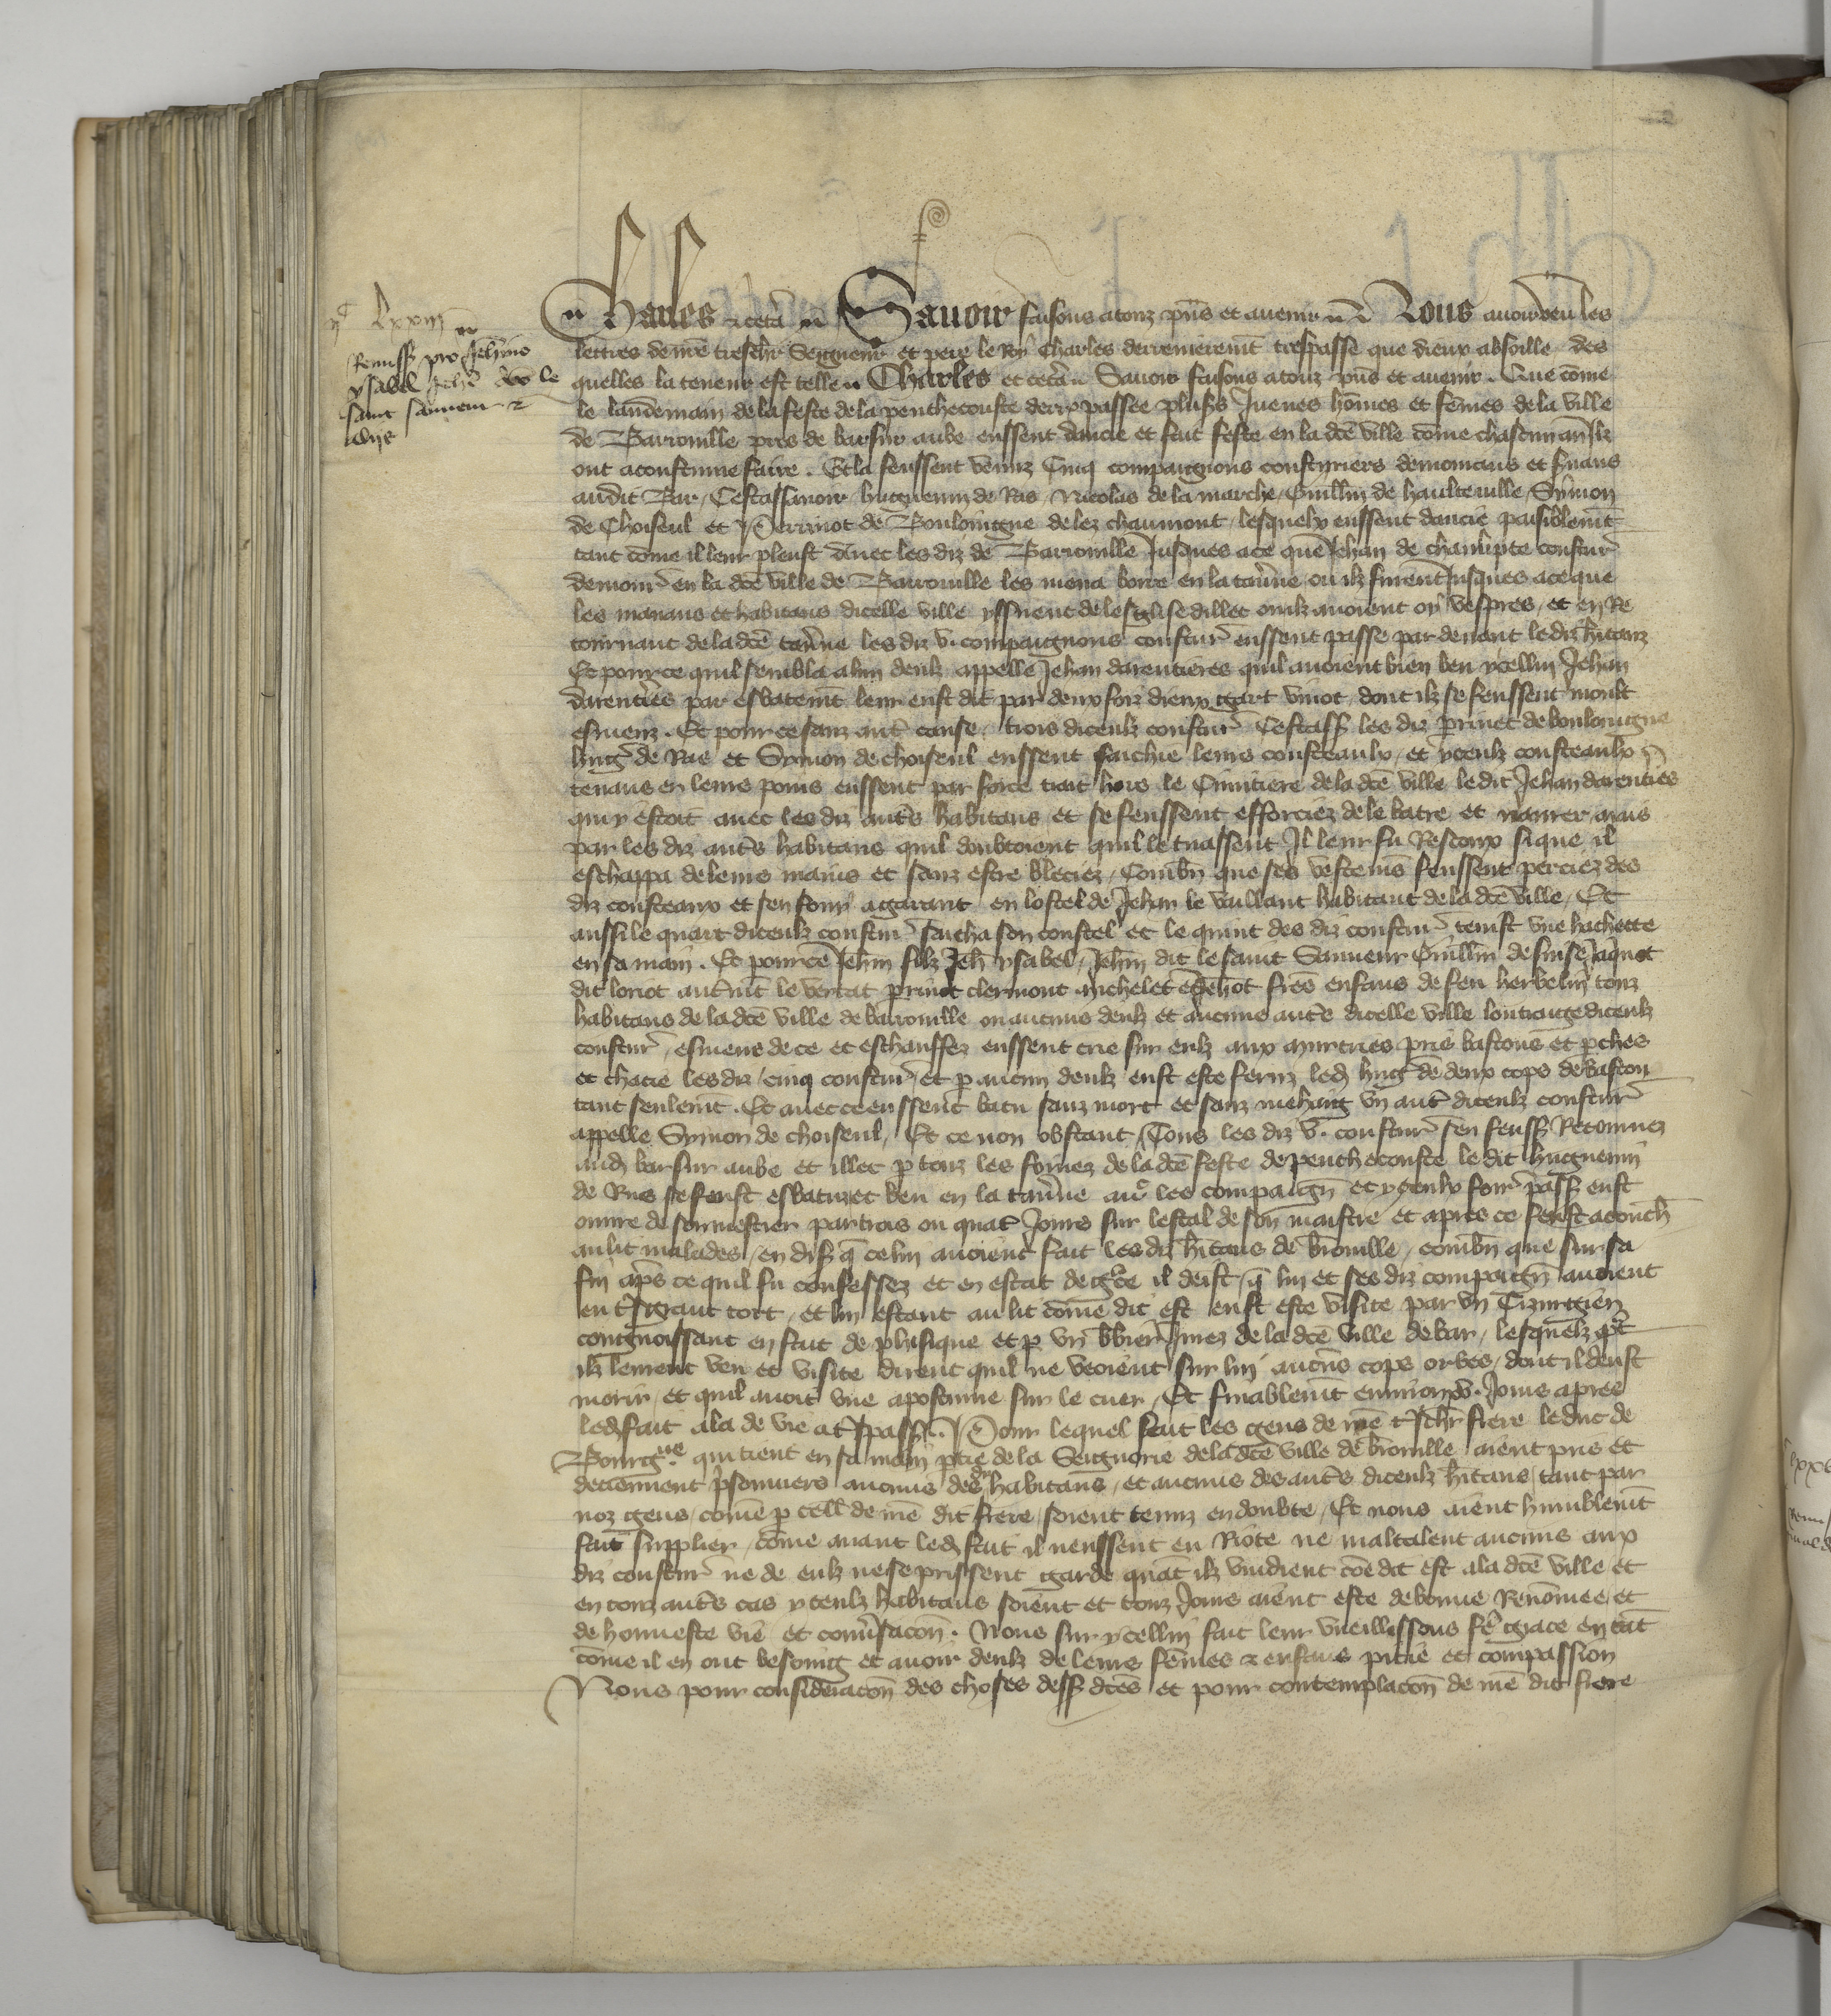 Lxxiij
Remiss pro Johanne
ysabel Johanne dco le
saint sauveur et
aliis
Charles et cetera Savoir faisons a touz pns et avenir Nous avoir veu les
lettres de nre treschr Seigneur et pere le Roy Charles derrenierement trespasse que dieux absoille des
quelles la teneur est telle Charles et cetera Savoir faisons a touz pns et avenir. Que come
le landemain de la feste de la penthecouste derrx passee plusrs Juenes homes et femes de la ville
de Barroville pres de barsur aube eussent dancie et fait feste en la dce ville come chascun an ilz
ont acoustume faire. Et la feussent venuz Cinq compaignons cousturiers demourans et servans
audit Bar, Cestassavoir huguenin de Ras, Nicolas de la marche, Guillin de haulteville, Symon
de Choiseul et Perrinot de Bouloingne delez chaumont, lesquelx eussent dancie paisiblemt
tant come il leur pleust Avec les diz de Barroville Jusques ace que Jehan de champte coustur
demour en la dce ville de Barroville les mena boire en la taverne ou ilz furent Jusques ace que
les manans et habitans dicelle ville yssirent de leglise dillec ou ilz avoient oy vespres, et en Re
tournant de la dce taverne les diz v. compaignons coustur eussent passe par devant le diz hitanz
Et pour ce quil sembla a lun deulz appelle Jehan darentieres quil avoient bien beu ycellui Jehan
darentieres par esbatemt leur eust dit par deux foiz dieux gart vinot, dont ilz se feussent moult
esmeuz. Et pour ce sanz autre cause, trois diceulz coustur Cestass les diz perrinet de bouloingne
hug de Ras et Symon de choiseul eussent sachie leurs cousteaulx, et yceulz cousteaulx
tenans en leurs poins eussent par force trait hors le Cimitiere de la dce ville le dit Jehan darentieres
qui y estoit avec les diz autres habitans et se feussent efforciez de le batre et navrer, mais
par les diz autres habitans quil doubtoient quil le tuassent Il leur fu Rescoux si que il
eschappa de leurs mains et sanz estre bleciez, Combn que ses vestemens feussent perciez des
diz cousteaux et sen fouy a garant en lostel de Jehan le vaillant habitant de la dce ville, Et
aussi le quart diceulz coustur sacha son coustel et le quint des diz coustur tenist une hachette
en sa main. Et pour ce Jehan filz Jeh ysabel, Jehan dit le saint Sauveur Guillin de suise Jaquot
dit loriot autremt le verrat perrinot clermont michelet et Jehot freres enfans de feu herbelin touz
habitans de la dce ville de barroville ou aucuns deulz et aucuns autres dicelle ville loutrage diceulz
coustur, esmeus de ce et eschauffez eussent crie sur eulz aux murtries pris bastons et perches
et chacie les diz cinq coustur, et par aucun deulz eust este feruz led hug de deux cops de baston
tant seulemt. Et avec ce eussent batu sanz mort et sanz mehaing un autre diceulz coustur
appelle Symon de choiseul, Et ce non obstant, Tous les diz v. coustur sen feuss Retournez
aud bar sur aube et illec par touz les foiriez de la dce feste de penthecouste le dit huguenin
de Ras se feust esbatuz et beu en la taverne avec les compaign et yceulx foir passz eust
ouvre de son mestier par trois ou quatre Jours sur lestal de son maistre et apres ce feust acouch
au lit malades en dist que celui avoient fait les diz hitans de brouille, combn que sur sa
fin apres ce quil fu confessez et en estat de grace il deist, que lui et ses diz compaign avoient
eu tresgrant tort, et lui estant au lit come dit est eust este visite par un Cirurgien
congnoissant en fait de phisique et par un barbier Jurez de la dce ville de bar, lesquelz qut
ilz leurent veu et visite dirent quil ne veoient sur lui aucuns cops orbes, dont il deust
morir, et quil avoit une apostume sur le cuer, Et finablemt environ v. Jours apres
led fait ala de vie a trespassemt. Pour lequel fait les gens de nre treschr frere le duc de
Bourgne. qui tient en sa main partie de la Seignorie de la dce ville de brouille aient pris et
detiennent prisonniers aucuns des diz habitans, et aucuns des autres diceulz hitans, tant par
noz gens, come par cell de nre dit frere, soient tenuz en doubte, Et nous aient humblemt
fait supplier, come avant led fait il neussent eu Riote ne maltalent aucuns aux
diz coustur ne de eulz ne se prissent garde quant ilz vuidient coe dit est a la dce ville et
en touz autres cas yceulz habitans soient et touz Jours aient este de bonne Renomee, et
de honneste vie et conversacon. Nous sur ycellui fait leur vueillissons fe grace en tat
come il en ont besoing et avoir deulz de leurs femes et enfans pitie et compassion
Nous pour consideracon des choses dess dces et pour contemplacon de nre dit frere